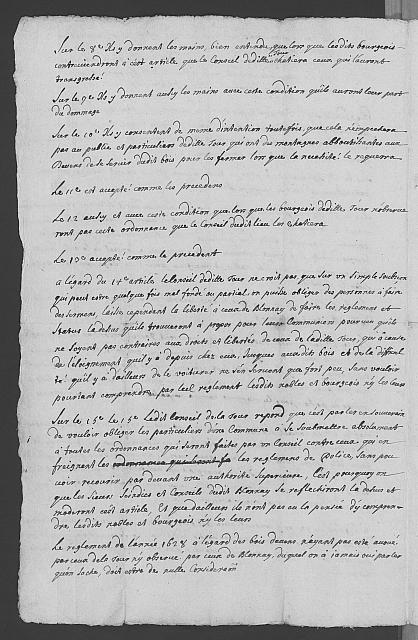 Sur le 8e Ils y donnent les mains, bien entendu que lors que lesdits bourgeois
contreviendront à cest article que le Conseil dedille Tour chatiera ceux qui l'auront
transgressé
Sur le 9e Ils y donnent aussy les mains avec ceste condition quils auront leur part
du dommage
Sur le 10e Ils y consentent de meme d'intention toutesfois, que cela n'empechera
pas au public et particuliers dedille Tour qui ont des montagnes aboutissantes aux
de se servir dudit bois pour les fermer lors que la necessité le requerra
Le 11e est accepté comme les precedens
Le 12 aussy et avec ceste condition que lors que les bourgeois dedille Tour n'observe
ront pas ceste ordonnance que le Conseil dudit lieu les chatiera
Le 13e accepté comme le precedent
a l'égard du 14e article le Conseil dedille Tour ne croit pas, que sur un simple soubçon
qui peut estre quelque fois mal fondé ou partial on puisse obliger des personnes à faire
des sermens, laissant cependant la liberté à ceux de Blonnay de faire les reglements et
statuts la dessus quils trouveront à propos pour leurs Communiers pourveu quils
ne soyent pas contraires aux droits et libertés de ceux de ladille Tour, qui à cause
de l'eloignement quil y a depuis chez eux jusques auxdits bois et de la difficul
té quil y a d'ailleurs de le voiturer ne s'en servent que fort peu, sans vouloir
pourtant comprendre par tel reglement lesdits nobles et bourgeois ny les leurs
Sur le 15e le 15e Ledit Conseil de la Tour repond que c'est parler en souverain
de vouloir obliger les particuliers d'une Commune à se soubmettre absolument
à toutes les ordonnances qui seront faites par un Conseil contre ceux qui en
freignent les ordonnances qui seront fa les reglemens de Police, sans pou
voir recourir par devant une authorité superieure, C'est pourquoy on
que les Sieurs Sindics et Conseils dudit Blonnay se reflechiront la dessus et
moderont cest article, Et que d'ailleurs ils n'ont pas eu la pensée d'y compren
dre lesdits nobles et bourgeois ny les leurs
Le reglement de l'année 1628 à l'égard des bois devens n'ayant pas esté avoué
par ceux de la Tour ny observé par ceux de Blonnay, duquel on a jamais ouï parler
qu'en doit estre de nulle Consideraõn